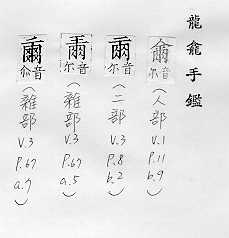 龍龕手鑑
音尔(人部 V.1 P.11 b.9)
音尔(二部 V.3 P.8 b.2)
音尔(雜部 V.3 P.67 a.5)
音(雜部 V.3 P.67 a.7)